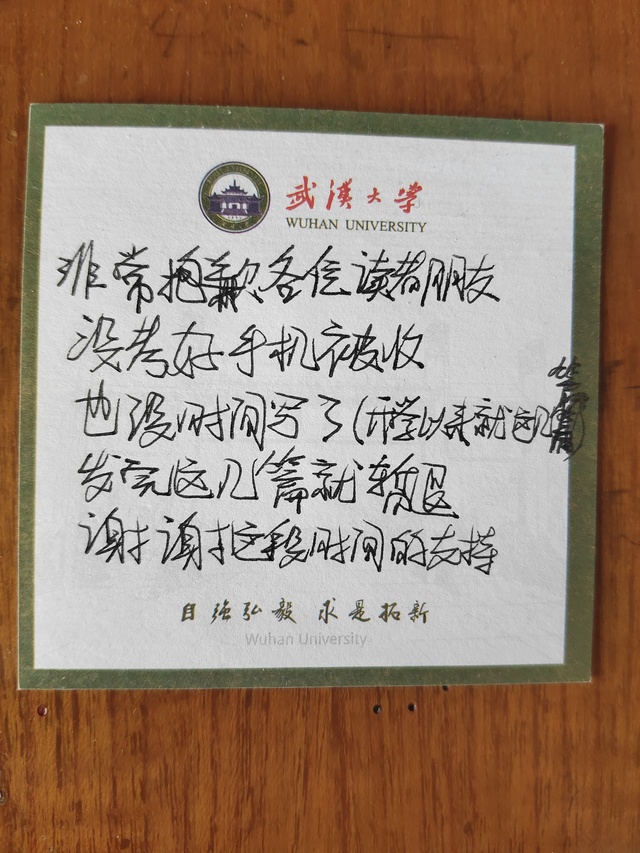 武漢大学
WUHAN UNIVERSITY
非常抱歉各位读者朋友
没考好手机被收
也没时间写了(开学以来就这几
发完这几篇就暂退
谢谢这段时间的支持
自强弘毅 求是拓新
Wuhan University